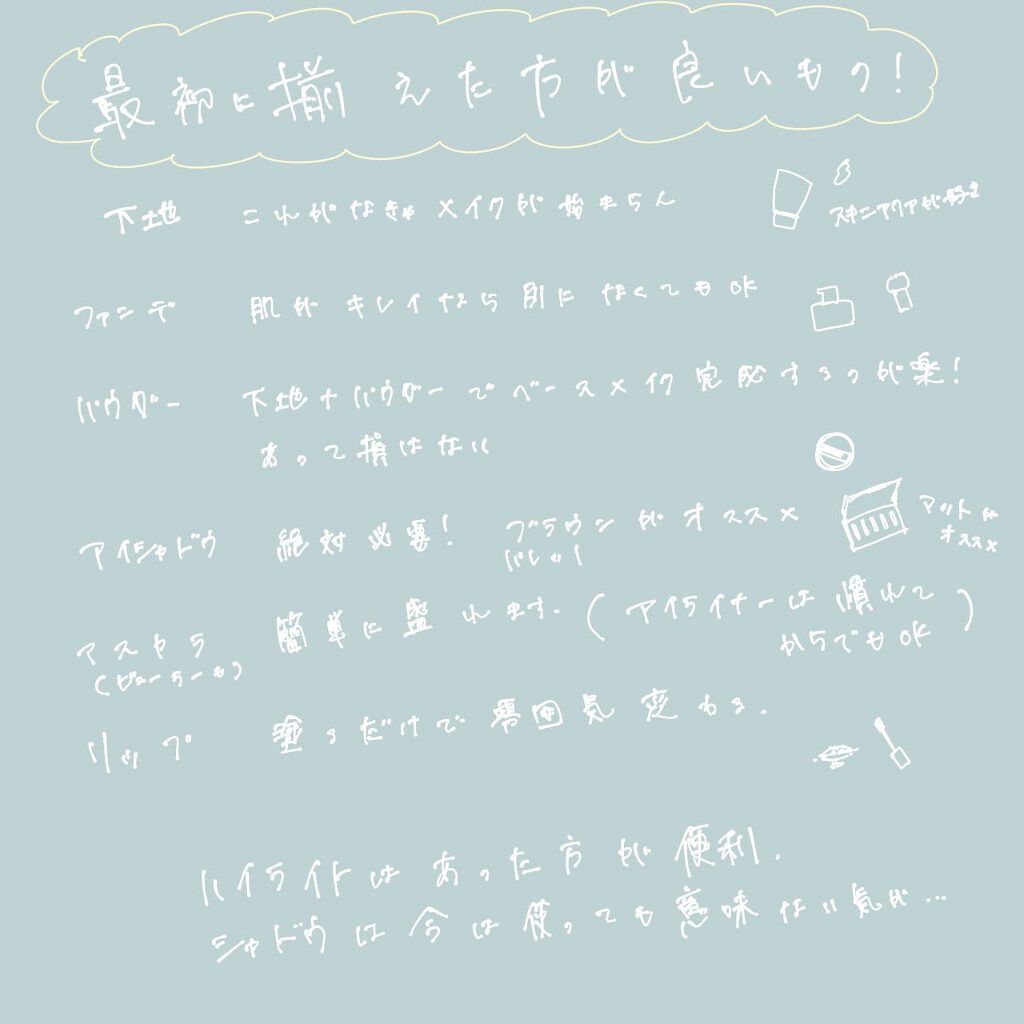 最初に揃えた方が良いもの!
下地 これがなきゃメイクが始まらん
スキンアクアが好き
ファンデ 肌がキレイなら別になくてもOK
パウダー 下地+パウダーでベースメイク完成するのが楽!
あって損はない
アイシャドウ 絶対必要! ブラウンがオススメ
パレット
マットが
オススメ
マスカラ 簡単に盛れます.(アイライナーは慣れて
からでもOK)
(ビューラーも)
リップ 塗るだけで雰囲気変わる.
ハイライトはあった方が便利.
シャドウは今は使っても意味ない気が...